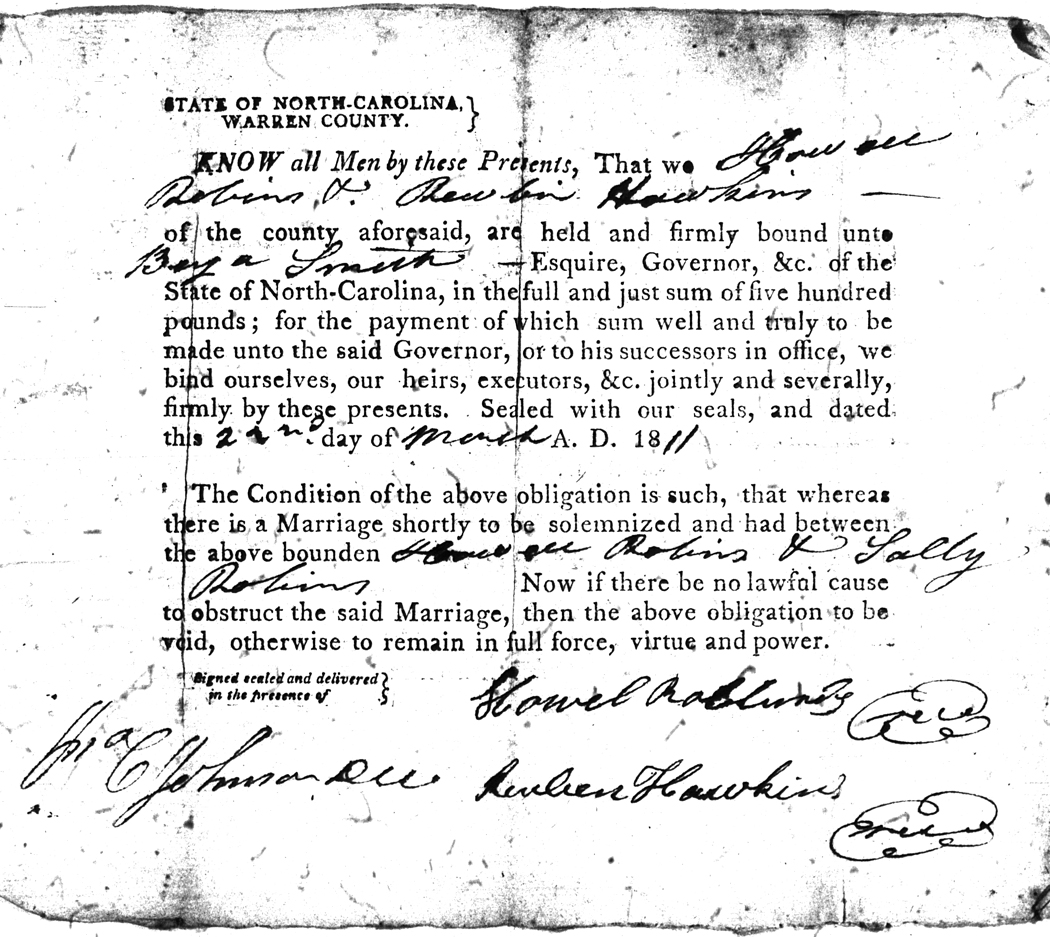 STATE OF NORTH-CAROLINA,
WARREN COUNTY.
KNOW all Men by these Presents, That we Howell
Robins & Rewbin Hawkins
of the county aforesaid, are held and firmly bound unto
Smith Esquire, Governor, &c. of the
State of North-Carolina, in the full and just sum of five hundred
pounds; for the payment of which sum well and truly to be
made unto the said Governor, or to his successors in office, we
bind ourselves, our heirs, executors, &c. jointly and severally,
firmly by these presents. Sealed with our seals, and dated
this 22nd. day of March A. D. 1811
The Condition of the above obligation is such, that whereas
there is a Marriage shortly to be solemnized and had between
the above bounden Howell Robins & Sally
Robins Now if there be no lawful cause
to obstruct the said Marriage, then the above obligation to be
void, otherwise to remain in full force, virtue and power.
Signed sealed and delivered
in the presence of
Howel
C Johnson
Reuben Hawkins